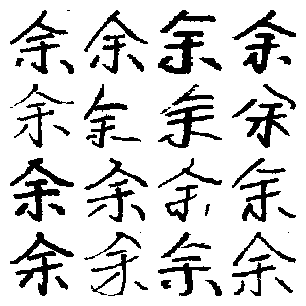 余余余余
余余余余
余余余余
余余余余